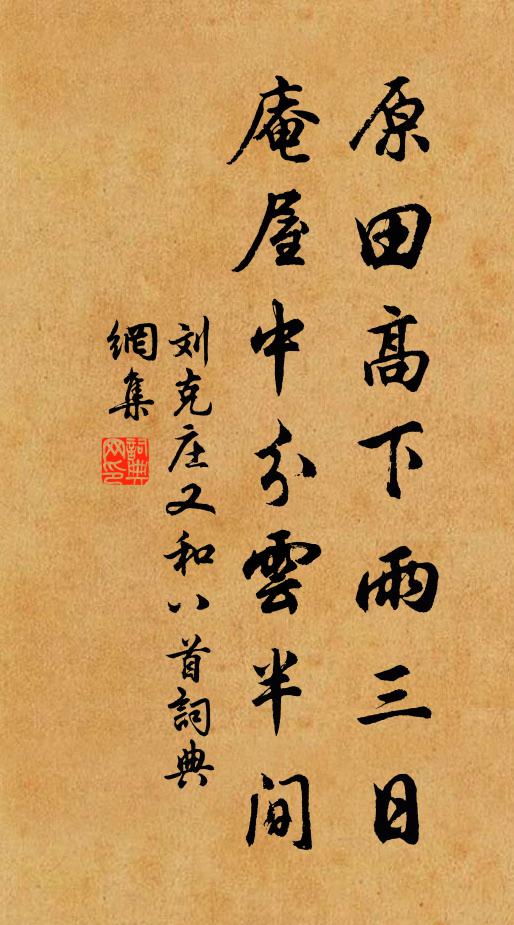 原田高下雨三日
庵屋中分雲半间
刘克庄又和八首詞典
網集
詞典网印